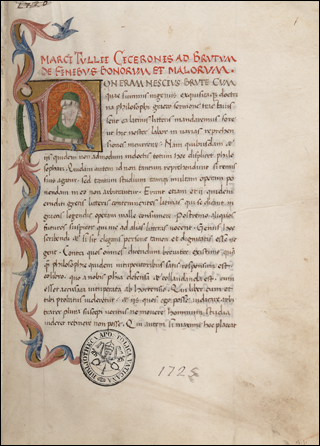 MARCI TULLII CICERONIS AD BRUTUM
DE FINIBUS BONORUM ET MALORUM.
NON ERAM NESCIUS BRUTE CUM
quae summis ingeniis exquisitaque doctrina
philosophi graeco sermone tractavissent
ea latinis litteris mandaremus fore
ut hic noster labor in varias reprehensiones
incurreret. Nam quibusdam et
iis quidem non admodum indoctis totum hoc displicet philosophari.
Quidam autem id non tam reprehendunt si remissius
agatur. Sed tantum studium tamque multam operam ponendam
in eo non arbitrantur. Erunt etiam et ii quidem
eruditi graecis litteris contemnentes latinas qui se dicant in
graecis legendis operam malle consumere. Postremo aliquos
futuros suspicor qui me ad alias litteras vocent. Genus hoc
scribendi et si sit elegans personae tamen et dignitatis esse negent.
Contra quos omnis dicendum breviter existimo
philosophiae quidem vituperatoribus satis responsum est
libro quo a nobis philosophia defensa et collaudata est cum
esset accusata et vituperata ab Hortensio. Qui liber cum et
tibi probatus videretur et iis quos ego posse iudicare arbitrarer
plura suscepi veritus ne movere hominum studia
viderer retinere non posse. Qui autem si maxime hoc placeat
BIBLIOTHECA APOSTOLICA VATICANA
1725